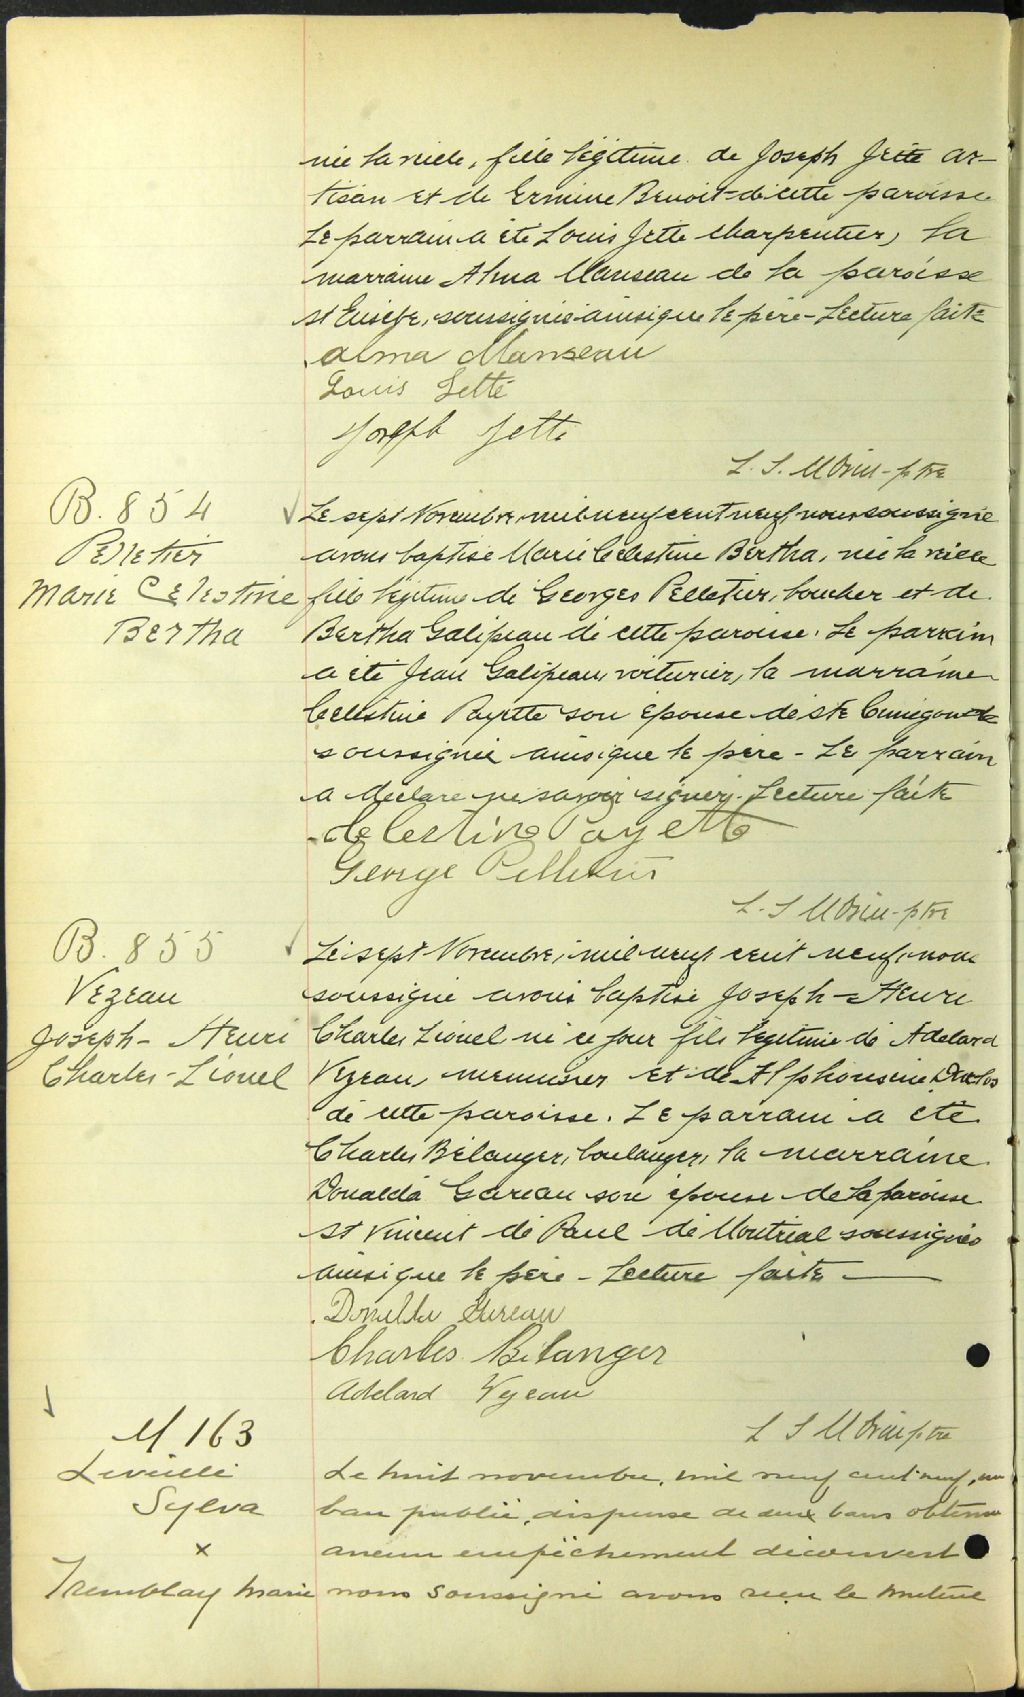 née la veille, fille légitime de Joseph Jetté ar-
tisan et de Ermine Benoit de cette paroisse
Le parrain a été Louis Jetté charpentier, la
marraine Alma Manseau de la paroisse
st Eusèbe, soussignés ainsi que le père - Lecture faite
Alma Manseau
Louis Jetté
Joseph Jetté
L. S. ptre
B. 854
Pelletier
Marie Celestine
Bertha
Le sept Novembre, mil neuf cent neuf nous soussigné
avons baptisé Marie Celestine Bertha, née la veille
fille légitime de Georges Pelletier, boucher et de
Bertha Galipeau de cette paroisse. Le parrain
a été Jean Galipeau, voiturier, la marraine
Celestine Payette son épouse de ste Cunégonde
soussignée ainsi que le père - Le parrain
a déclaré ne savoir signer. Lecture faite
Celestine Payette
George Pelletier
L. S ptre
B. 855
Vezeau
Joseph-Henri
Charles-Lionel
Le sept Novembre, mil neuf cent neuf, nous
soussigné avons baptisé Joseph-Henri
Charles Lionel né ce jour fils légitime de Adelard
Vezeau, menuisier et de Alphonsine
de cette paroisse. Le parrain a été
Charles Bélanger, boulanger, la marraine
Donalda Gareau son épouse de la paroisse
st Vincent de Paul de Montréal soussignés
ainsi que le père - Lecture faite
Donalda Gareau
Charles Bélanger
Adelard Vezeau
L S ptre
M 163
Leveillé
Sylva
x
Tremblay Marie
Le huit novembre, mil neuf cent neuf, un
ban publié, dispense de deux bans obtenue
aucun empêchement découvert
nous soussigné avons reçu le mutuel